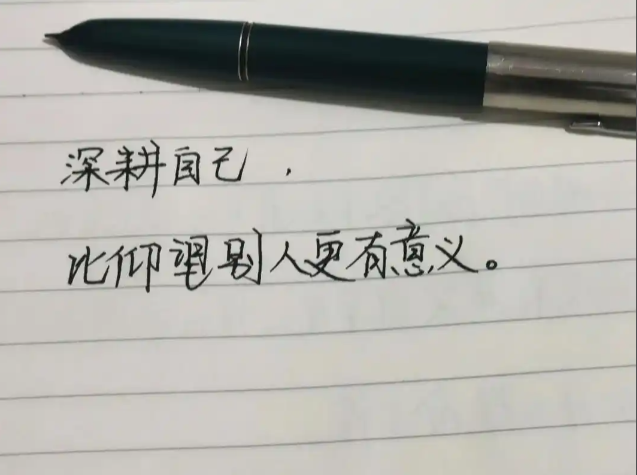 深耕自己，
比仰望别人更有意义。